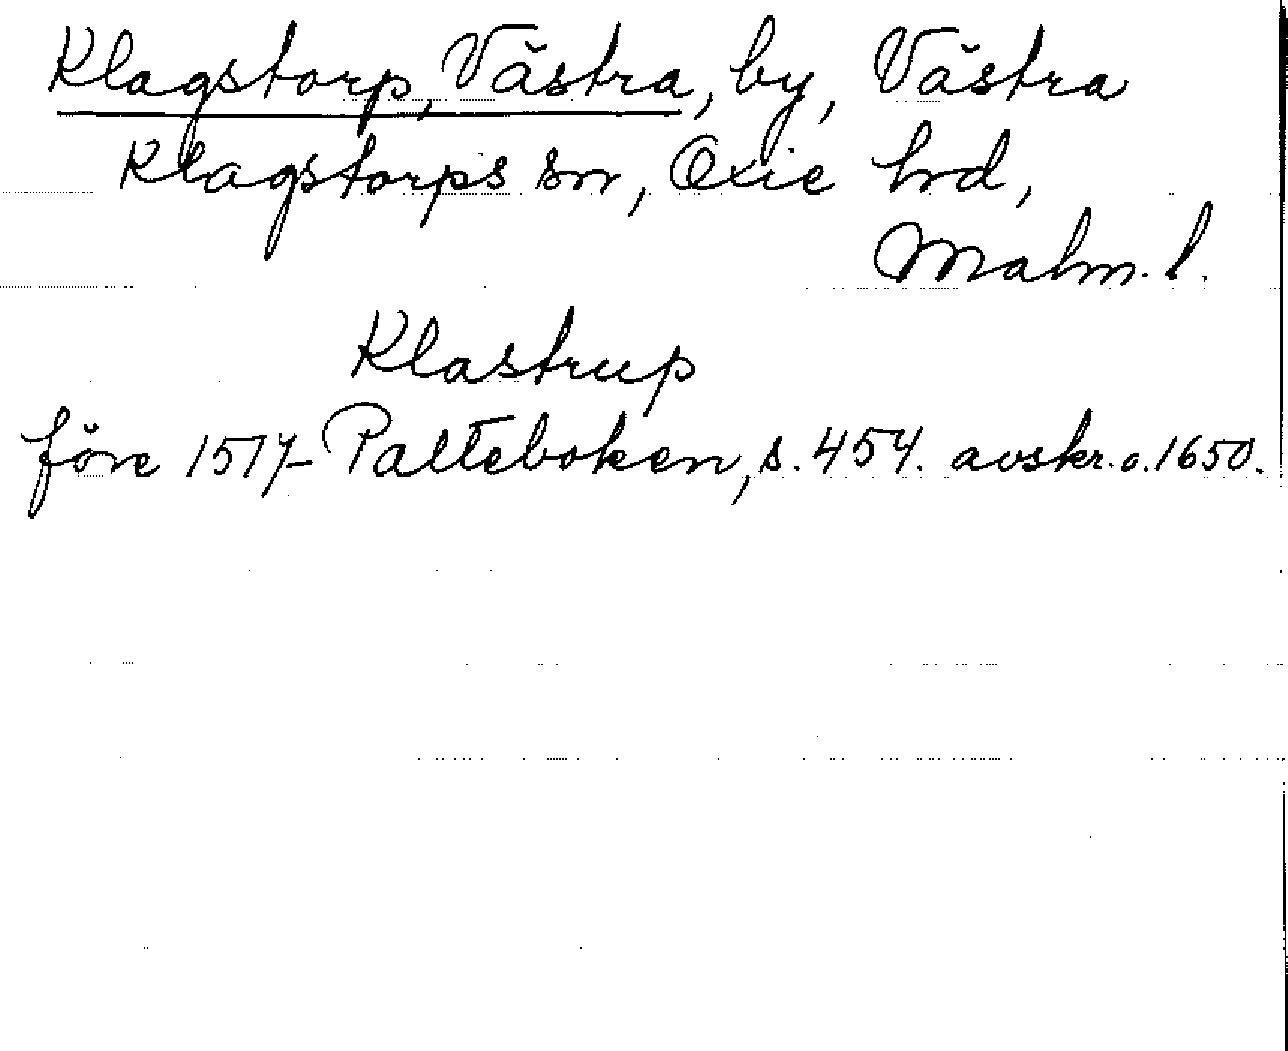 Klagstorp, Västra, by, Västra
Klagstorps sn, Oxie hd,
Malm. l.
Klastrup
före 1517 Palteboken, s. 454. avskr. o. 1650.